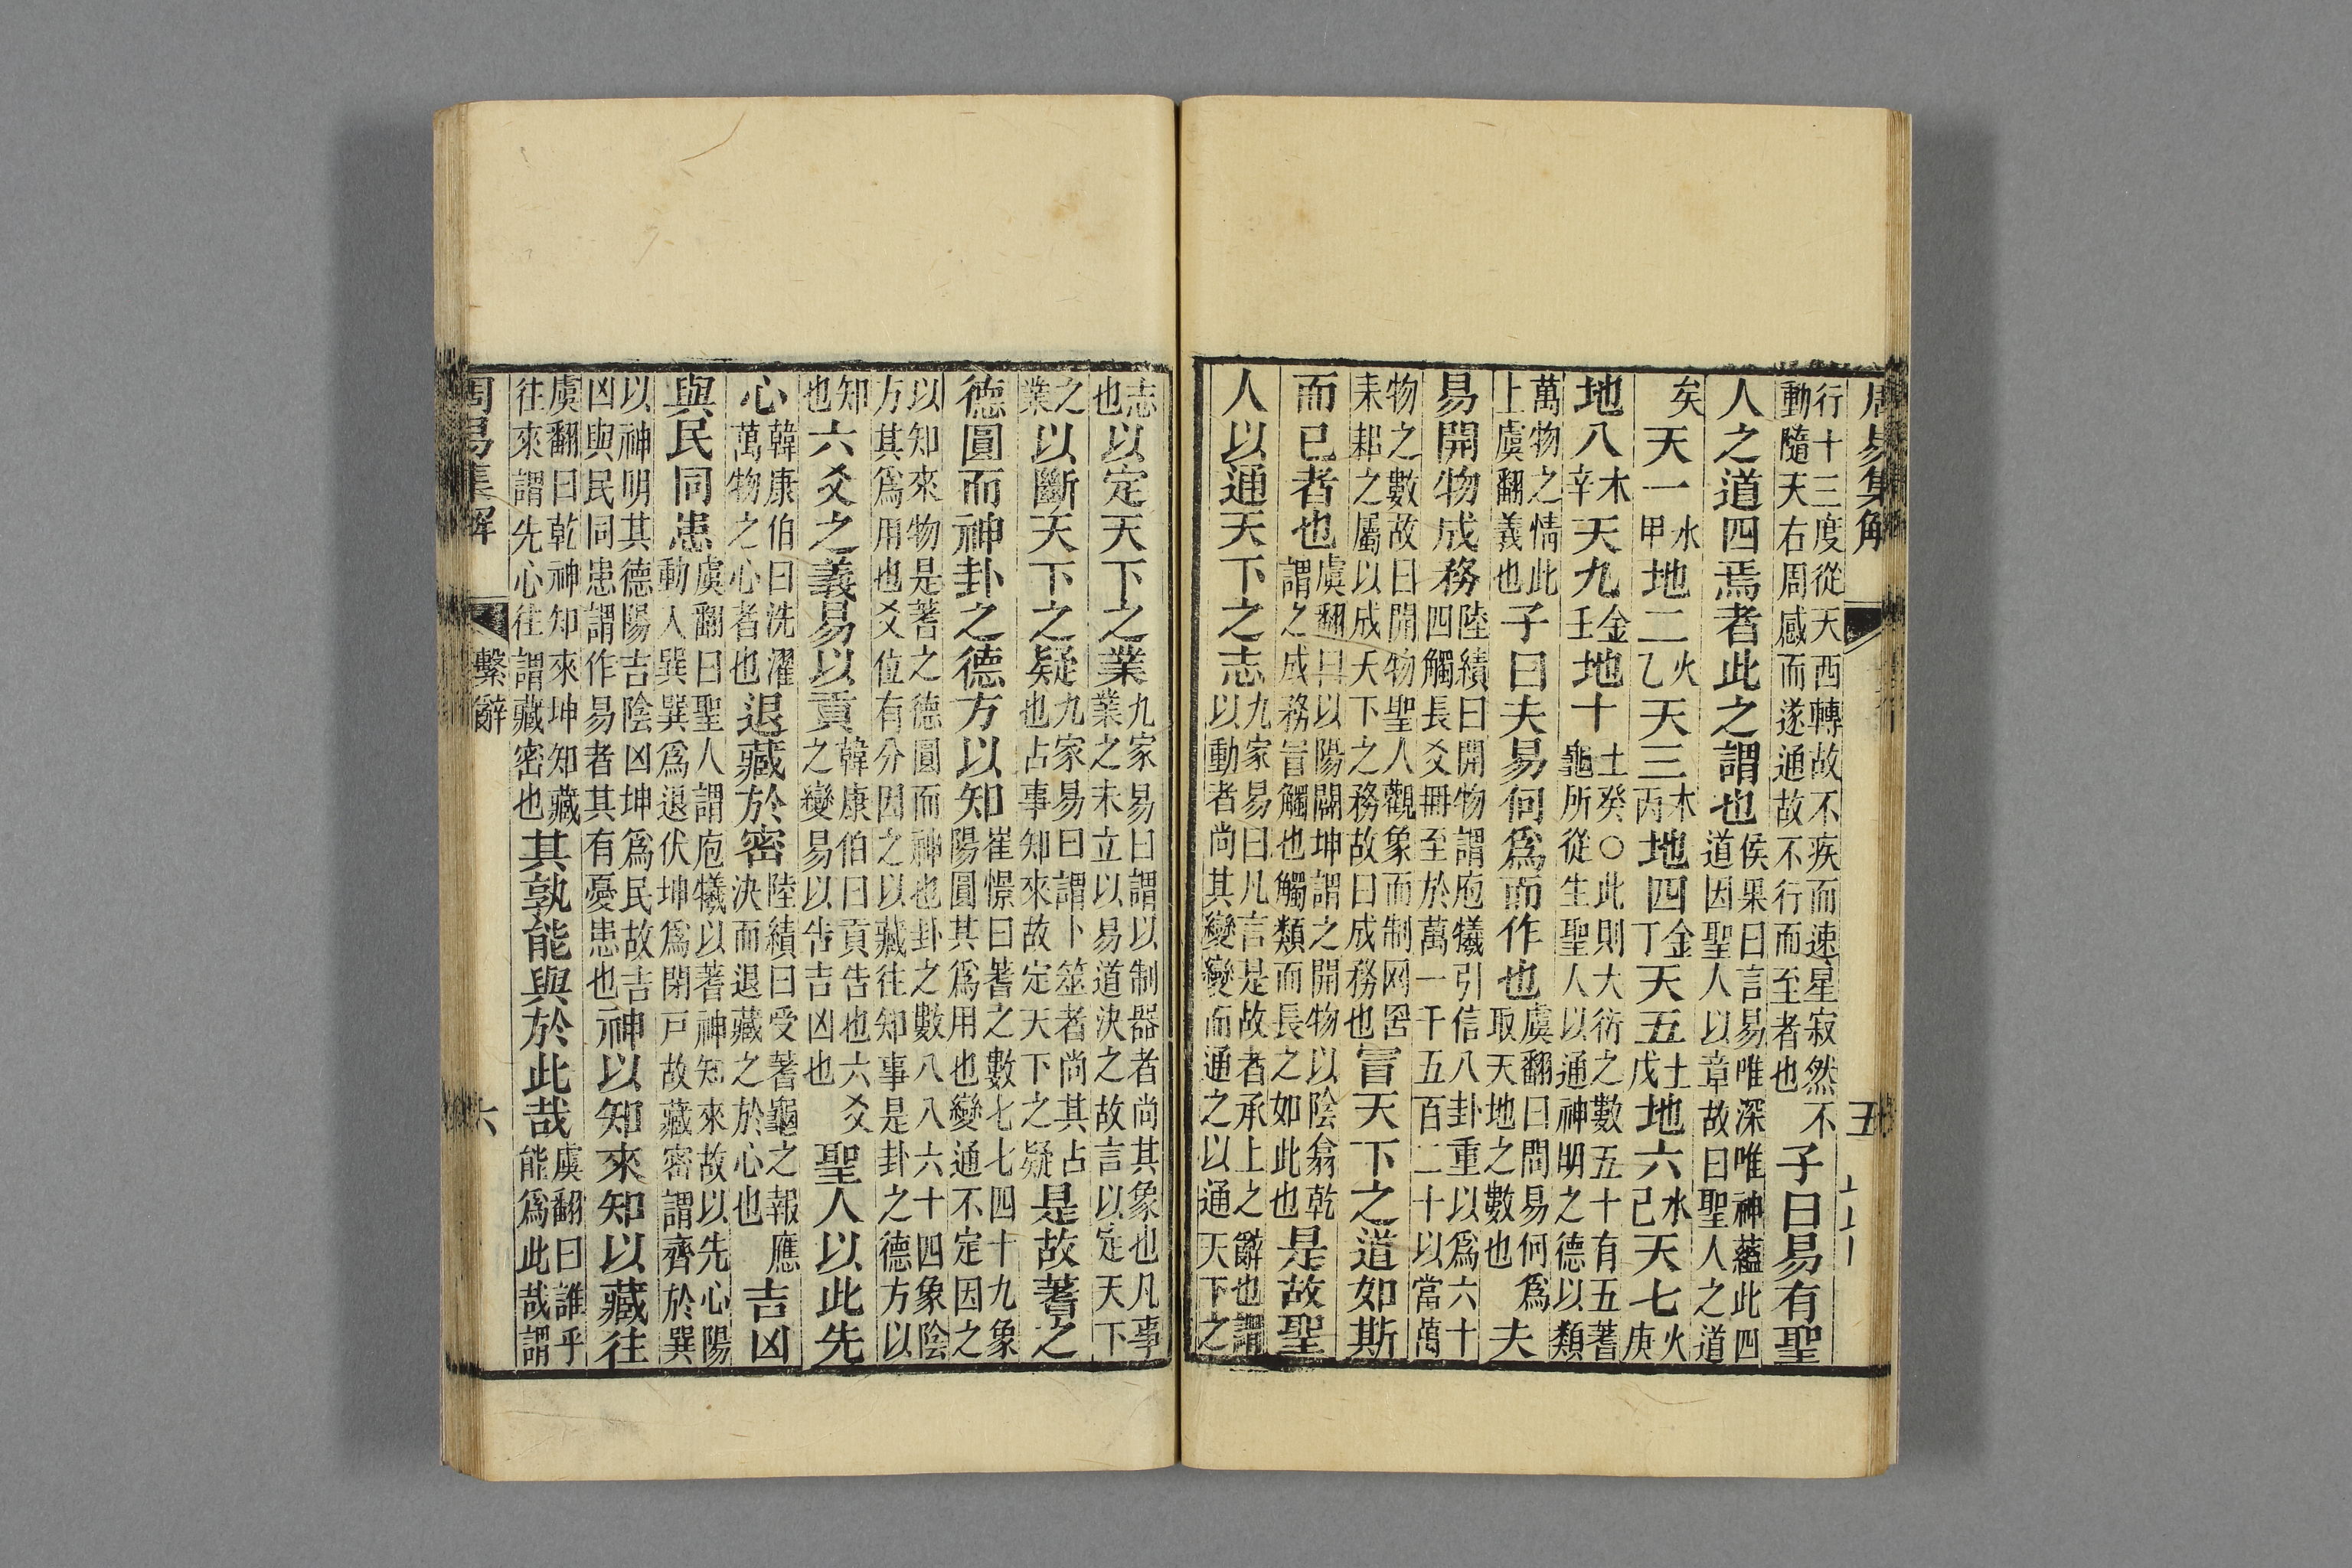 周易集解 五
行十三度從天西轉故不疾而速星寂然不動隨天右周感而遂通故不行而至者也子曰易有聖
人之道四焉者此之謂也侯果曰言易唯深唯神蘊此四道因聖人以章故曰聖人之道
矣天一水甲地二火乙天三木丙地四金丁天五土戊地六水己天七火庚
地八木辛天九金壬地十土癸○此則大衍之數五十有五蓍龜所從生聖人以通神明之德以類
萬物之情此上虞翻義也子曰夫易何爲而作也虞翻曰問易何爲取天地之數也夫
易開物成務陸績曰開物謂庖犧引信八卦重以爲六十四觸長爻冊至於萬一千五百二十以當萬
物之數故曰開物聖人觀象而制网罟耒耜之屬以成天下之務故曰成務也冒天下之道如斯
而已者也虞翻曰以陽闢坤謂之開物以陰翕乾謂之成務冒觸也觸類而長之如此也是故聖
人以通天下之志九家易曰凡言是故者承上之辭也謂以動者尚其變變而通之以通天下之
志也以定天下之業九家易曰謂以制器者尚其象也凡事業之未立以易道決之故言以定天下
之業以斷天下之疑九家易曰謂卜筮者尚其占也占事知來故定天下之疑是故蓍之
德圓而神卦之德方以知崔憬曰蓍之數七七四十九象陽圓其爲用也變通不定因之
以知來物是蓍之德圓而神也卦之數八八六十四象陰方其爲用也爻位有分因之以藏往知事是卦之德方以
知也六爻之義易以貢韓康伯曰貢告也六爻之變易以告吉凶也聖人以此先
心韓康伯曰洗濯萬物之心者也退藏於密陸績曰受蓍龜之報應決而退藏之於心也吉凶
與民同患虞翻曰聖人謂庖犧以蓍神知來故以先心陽動入巽巽爲退伏坤爲閉戸故藏密謂齊於巽
以神明其德陽吉陰凶坤爲民故吉凶與民同患謂作易者其有憂患也神以知來知以藏往
虞翻曰乾神知來坤知藏往來謂先心往謂藏密也其孰能與於此哉虞翻曰誰乎能爲此哉謂
周易集解 繫辭 六